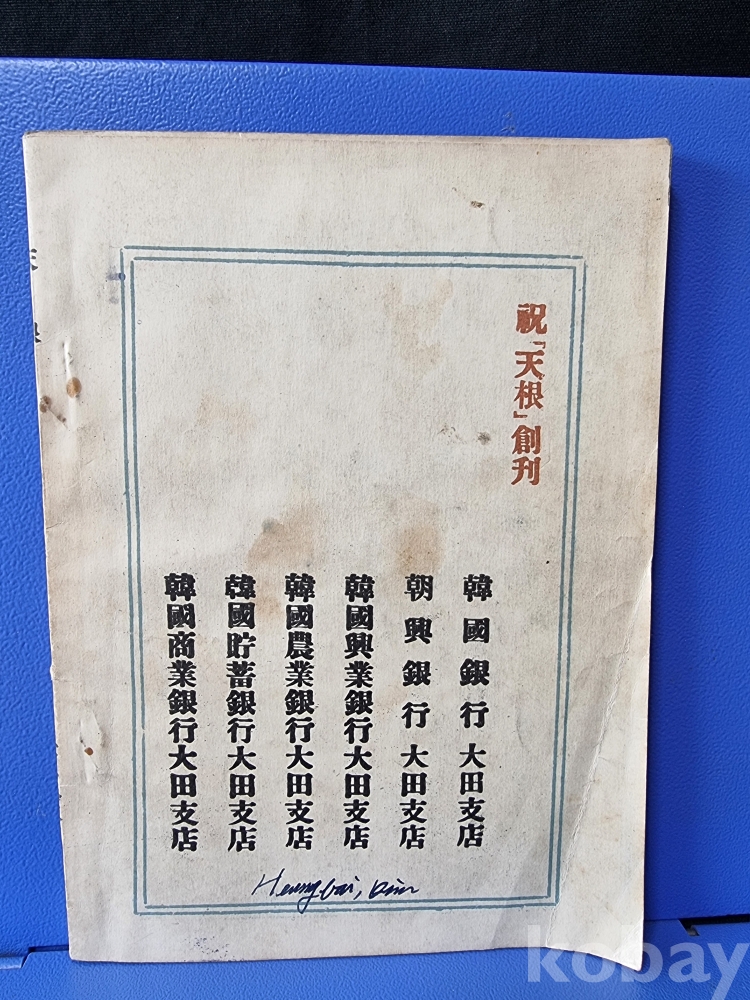 祝「天根」創刊
韓國銀行大田支店
朝興銀行大田支店
韓國興業銀行大田支店
韓國農業銀行大田支店
韓國貯蓄銀行大田支店
韓國商業銀行大田支店
Heungbai, Kim
kobay